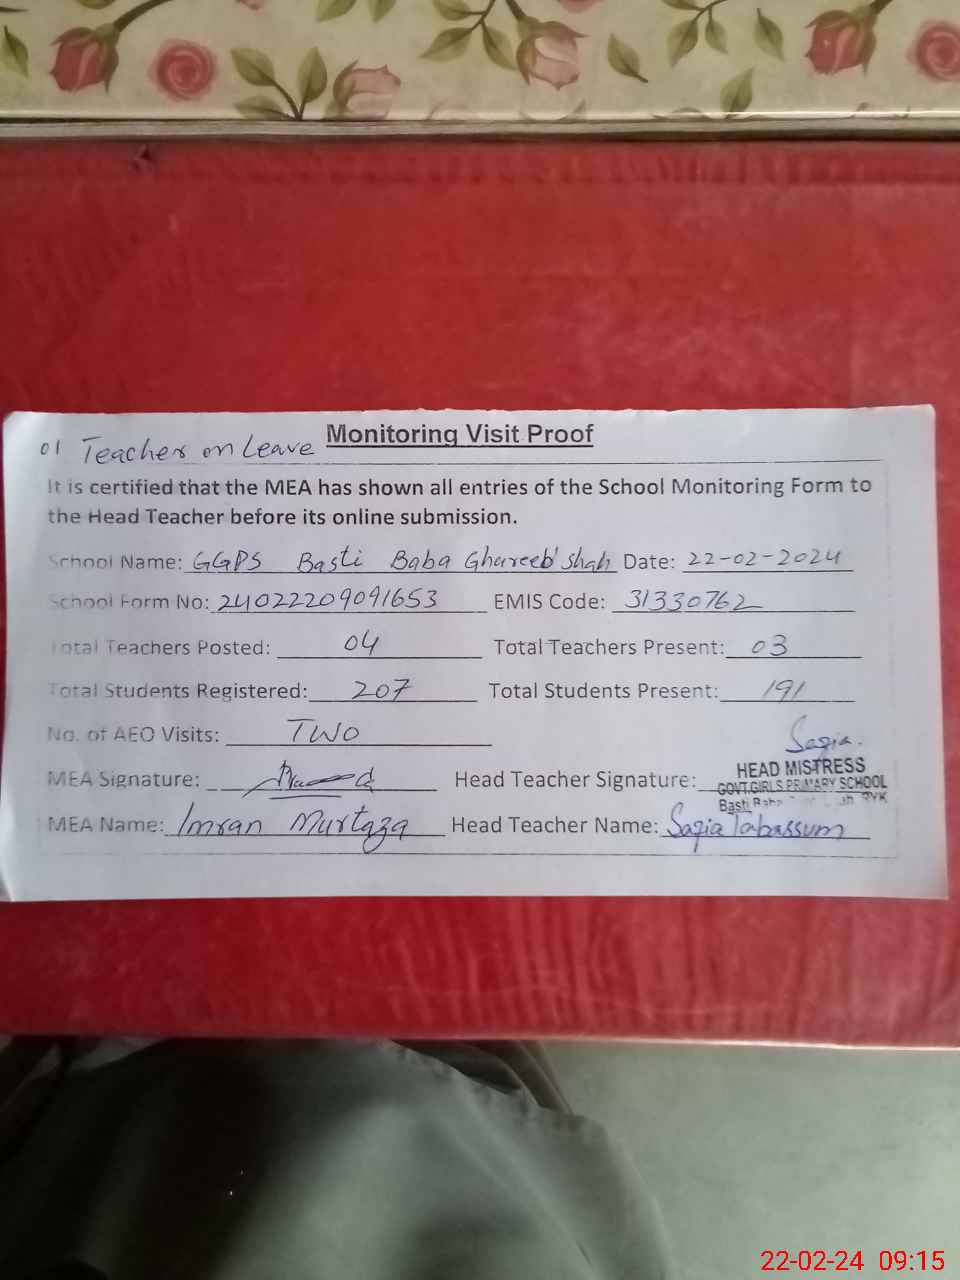 Monitoring Visit Proof
01 Teacher on Leave
It is certified that the MEA has shown all entries of the School Monitoring Form to
the Head Teacher before its online submission.
School Name: GGPS Basti Baba Ghareeb Shah Date: 22-02-2024
School Form No: 24022209091653 EMIS Code: 31330762
Total Teachers Posted: 04 Total Teachers Present: 03
Total Students Registered: 207 Total Students Present: 191
No. of AEO Visits: TWO
Sazia.
MEA Signature: Head Teacher Signature:
HEAD MISTRESS
GOVT.GIRLS PRIMARY SCHOOL
Basti RYK
MEA Name: Imran Murtaza Head Teacher Name: Sazia Tabassum
22-02-24 09:15